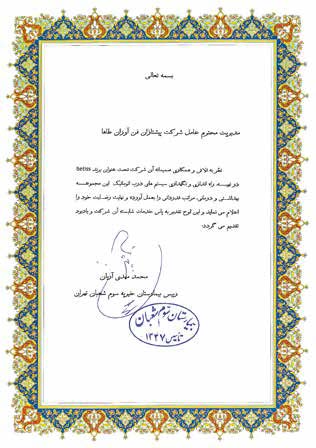 بسمه تعالی
مدیریت محترم عامل شرکت پیشتازان فن آوران طاها
نظر به تلاش و همکاری صمیمانه آن شرکت تحت عنوان برند betiss
در تهیه، راه اندازی و نگهداری سیستم های درب اتوماتیک این مجموعه
بهداشتی و درمانی، مراتب قدردانی را بعمل آورده و نهایت رضایت خود را
اعلام می نماید و این لوح تقدیر به پاس خدمات شایسته آن شرکت و یادبود
تقدیم می گردد.
محمد مهدی آذیان
رییس بیمارستان خیریه سوم شعبان تهران
بیمارستان سوم شعبان
تأسیس ۱۳۴۷